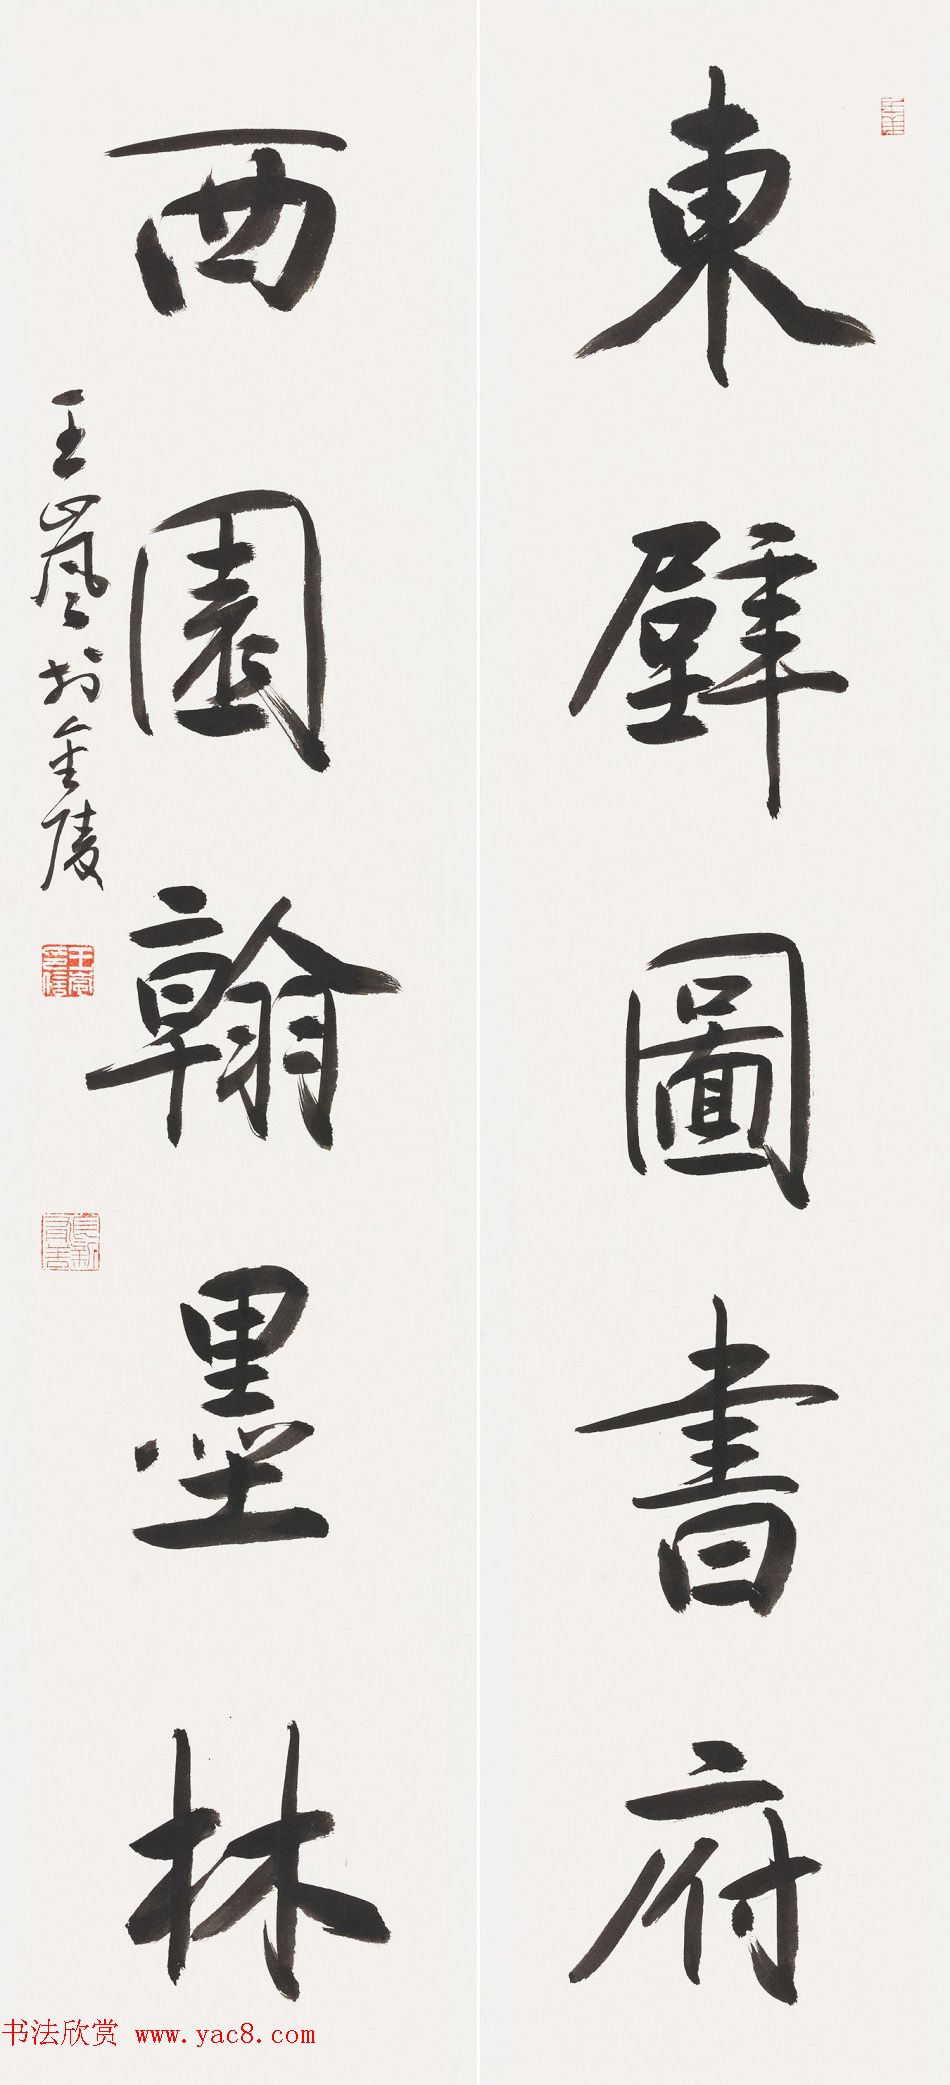 東壁圖書府
西園翰墨林
王嵐於金陵
书法欣赏 www.yac8.com